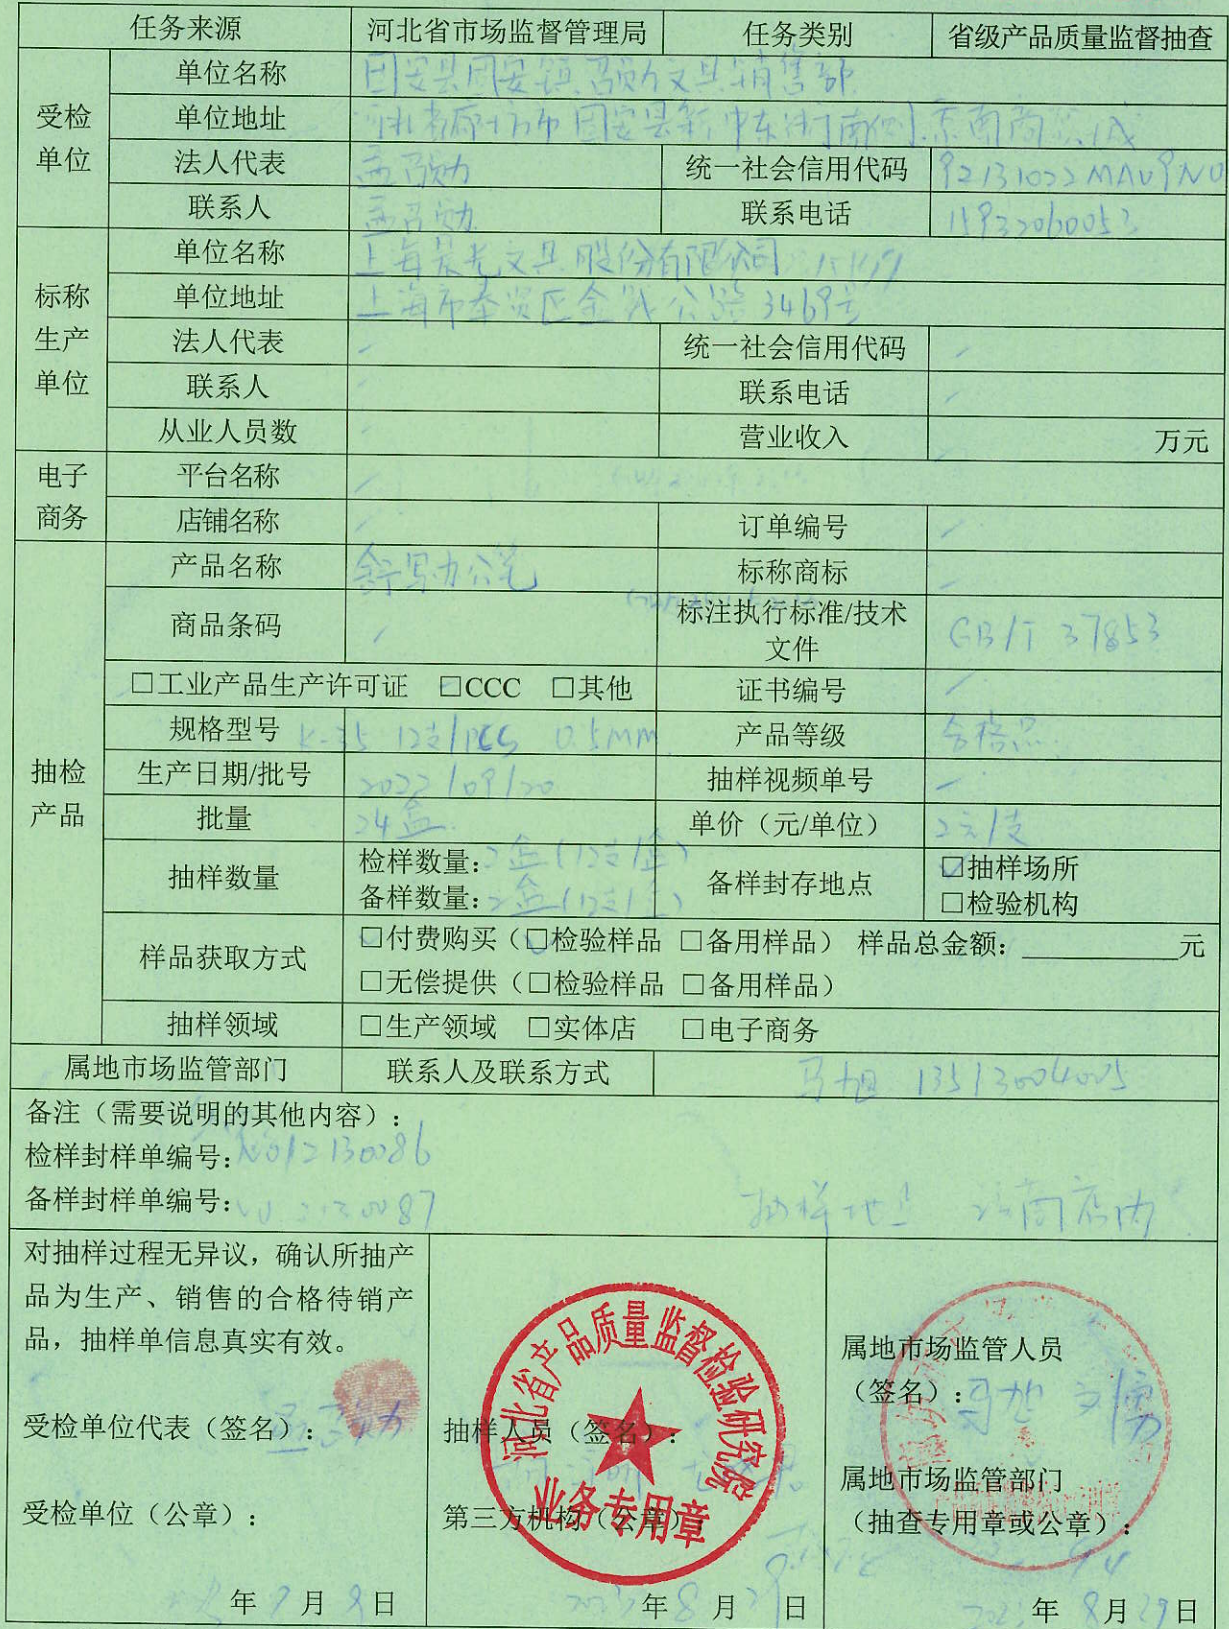 任务来源 河北省市场监督管理局 任务类别 省级产品质量监督抽查
受检单位 单位名称 固安县固安镇召勋文具销售部
单位地址 河北省廊坊市固安县新中东街南侧东南商贸城
法人代表 孟召勋 统一社会信用代码
联系人 孟召勋 联系电话 15932060053
标称生产单位 单位名称 上海晨光文具股份有限公司
单位地址 上海市奉贤区金钱公路3469号
法人代表 / 统一社会信用代码 /
联系人 / 联系电话 /
从业人员数 / 营业收入 / 万元
电子商务 平台名称 /
店铺名称 / 订单编号 /
抽检产品 产品名称 舒写办公笔 标称商标 /
商品条码 / 标注执行标准/技术文件 GB/T 37853
□工业产品生产许可证 □CCC □其他 证书编号 /
规格型号 K-35 12支/PCS 0.5MM 产品等级 合格品
生产日期/批号 2022/09/20 抽样视频单号 /
批量 24盒 单价（元/单位） 2元/支
抽样数量 检样数量:2盒(12支/盒) 备样封存地点 ☑抽样场所
备样数量:2盒(12支/盒) □检验机构
样品获取方式 ☑付费购买（☑检验样品 □备用样品） 样品总金额：________元
□无偿提供（□检验样品 □备用样品）
抽样领域 □生产领域 □实体店 □电子商务
属地市场监管部门 联系人及联系方式 马旭 13513004005
备注（需要说明的其他内容）：
检样封样单编号:NO12130086
备样封样单编号:
抽样地点 该商店内
对抽样过程无异议，确认所抽产
品为生产、销售的合格待销产
品，抽样单信息真实有效。
受检单位代表（签名）：孟召勋
受检单位（公章）：
年 月 日
河北省产品质量监督检验研究院
业务专用章
抽样人员（签名）：
第三方机构（公章）：
2023年8月29日
属地市场监管人员
（签名）：马旭
属地市场监管部门
（抽查专用章或公章）：
2023年8月29日